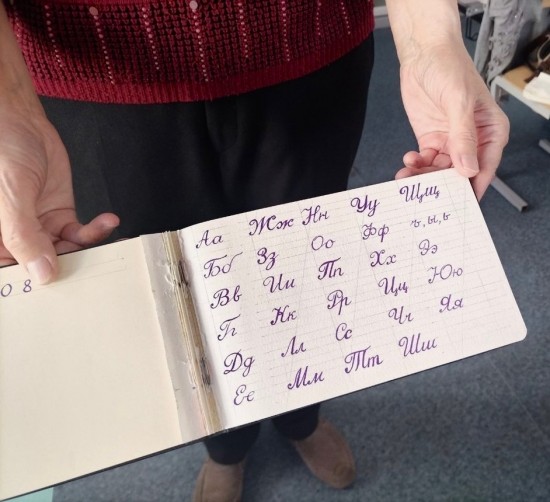 0 8
Аа Жж Нн Уу Щщ
Бб Зз Оо Фф ъ,ы,ь
Вв Ии Пп Хх Ээ
Гг Кк Рр Цц Юю
Дд Лл Сс Чч Яя
Ее Мм Тт Шш